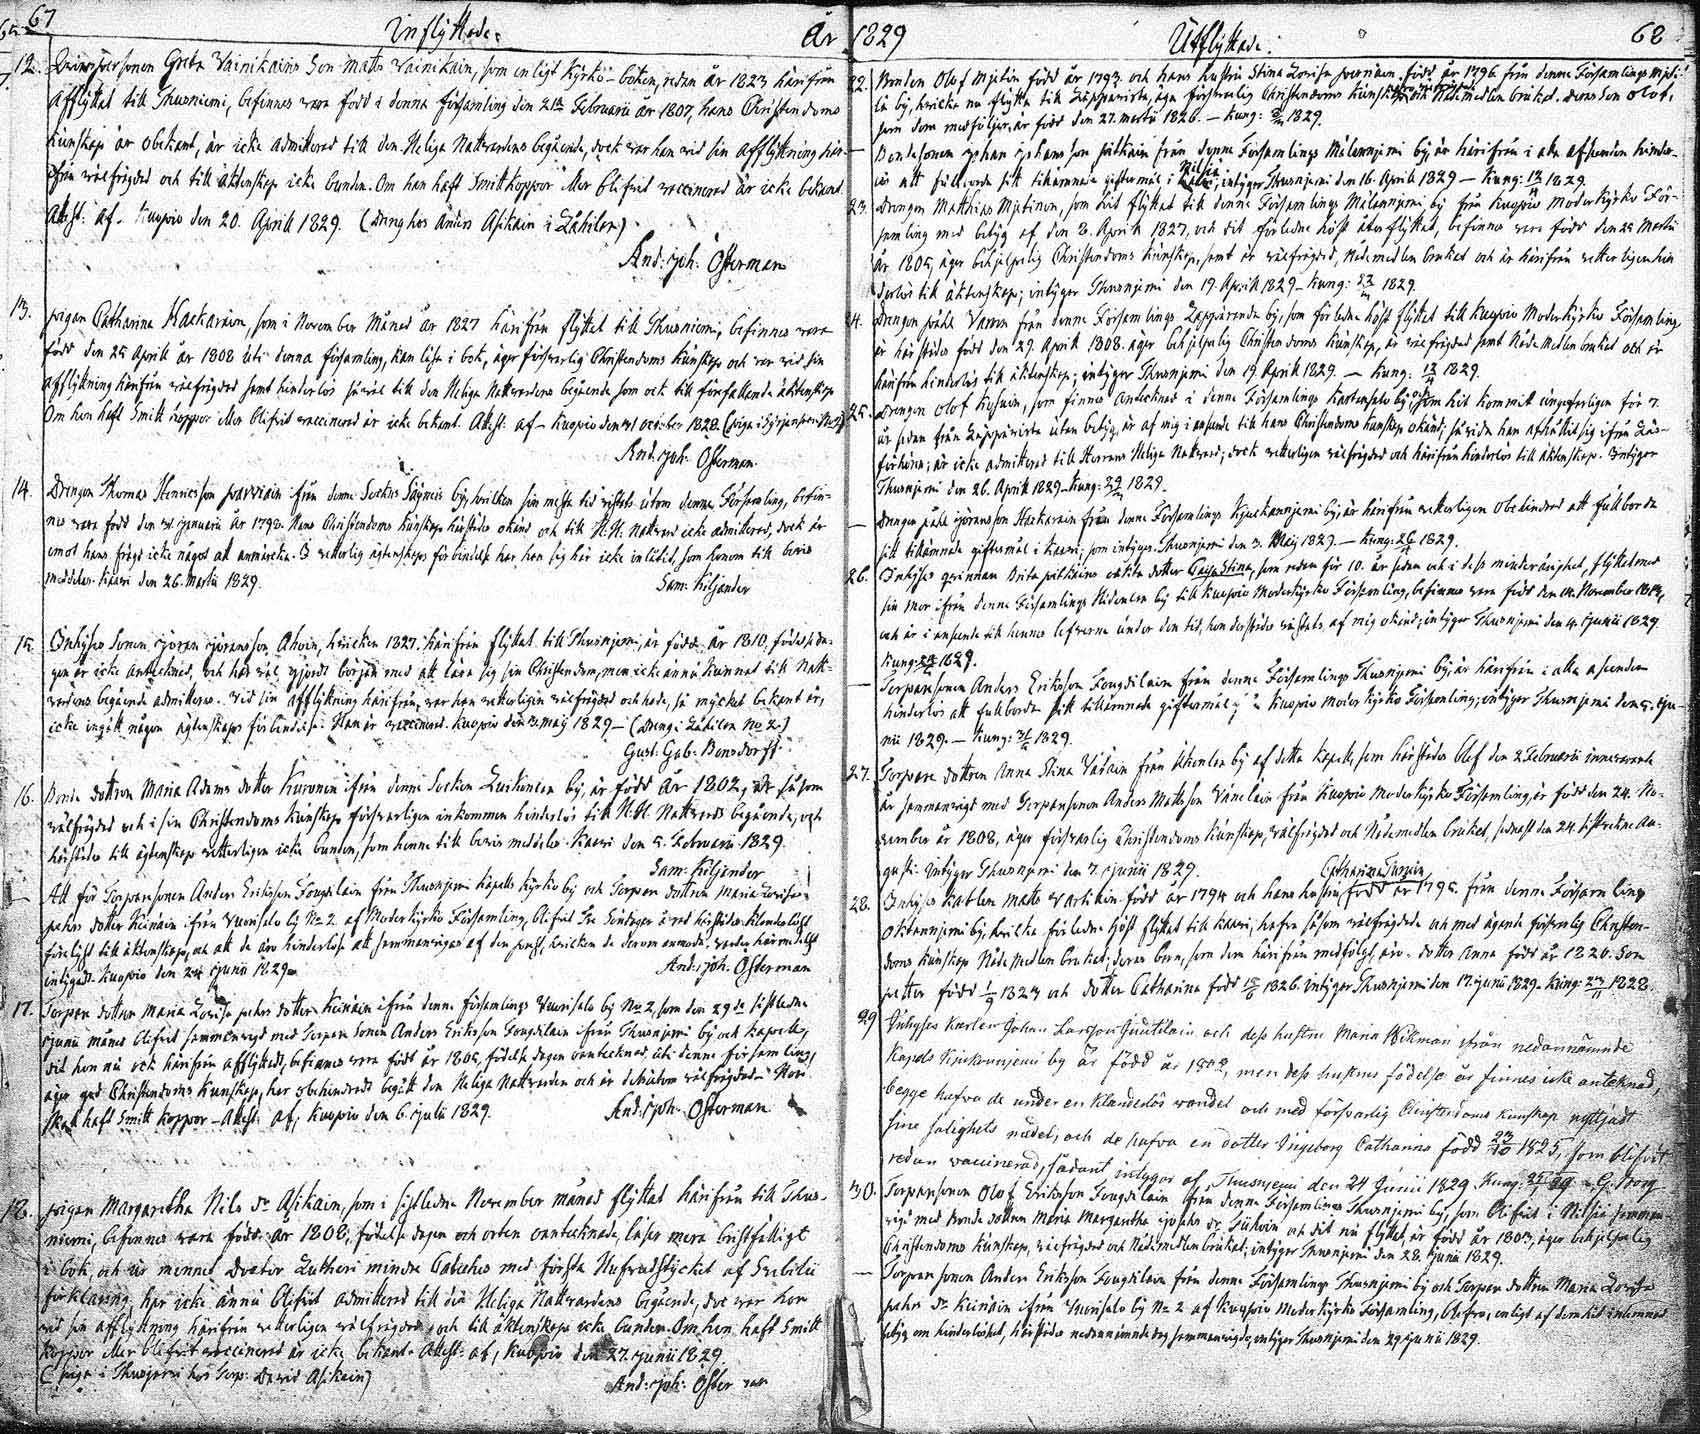 67
Inflyttade.
År
12. Qvinspersonen Greta Vainikains Son Matts Vainikain, som enligt Kyrko-boken, redan år 1823 härifrån
afflyttat till Thusniemi, befinnes vara född i denna församling den 21 Februarii år 1807, hans Christendoms
kunskap är obekant, är icke admitterad till den Heliga Nattvardens begående, dock var han vid sin afflyttning här-
ifrån välfrägdad och till äktenskap icke bunden. Om han haft Smittkoppor eller blifvit vaccinerad är icke bekant.
Attest: af. Kuopio den 20. Aprill 1829. (Dräng hos Anders Asikain i
And: Joh: Österman
13. Pigan Catharina Hackarain, som i November Månad år 1827 härifrån flyttat till Thusniemi, befinnes vara
född den 25 Aprill år 1808 uti denna församling, kan läsa i bok, äger försvarlig Christendoms kunskap och var vid sin
afflyttning härifrån välfrägdad samt hinderlös så väl till den Heliga Nattvardens begående som ock till förefallande äktenskap
Om hon haft Smitt koppor eller blifvit vaccinerad är icke bekant. Attest: af. Kuopio den 31 October 1828.
And: Joh: Österman.
14. Drengen Thomas Henricsson Parviain ifrån denna Sockns Säyneis by, hvilken sin mesta tid vistats utom denna Församling, befin-
nes vara född den 31. Januarii år 1798. Hans Christendoms kunskap härstädes okänd och till H. H. Nattvard icke admitterad, dock är
emot hans frägd icke något att anmärka. I vetterlig ägtenskaps förbindelse har han sig här icke inlåtit, som honom till bevis
meddelas. Kaavi den 26. Martii 1829.
Sam: Kiljander
15. Inhyses Sonen Jöran Jöransson Ahoin, hvilken 1827 härifrån flyttat till Thusnjemi, är född år 1810, födelseda-
gen är icke antecknad, och har väl gjordt början med att lära sig sin Christendom, men icke ännu kunnat till Natt-
vardens begående admitteras. Vid sin afflyttning härifrån, var han vetterligen välfrägdad och hade, så mycket bekant är,
icke ingått någon ägtenskaps förbindelse. Han är vaccinerad. Kuopio den 3 Maij 1829 – (Dreng i No 2.)
Gust: Gab: Bonsdorff.
16. Bonde dottren Maria Adams dotter Kuronen ifrån denna Socken by, är född år 1802, är såsom
välfrägdad och i sin Christendoms kunskap försvarligen inkommen hinderlös till H. H. Nattvards begående, och
härstädes till ägtenskap vetterligen icke bunden, som henne till bevis meddelas. Kaavi den 5. Februarii 1829.
Sam: Kiljander
– Att för Torparesonen Anders Eriksson Fougdilain från Thusnjemi Kapells Kyrko by och Torpare dottren Maria Lovisa
Pahrs dotter Keinäin ifrån Vuorisalo by No 2. af Moderkyrko Församling, blifvit tre Söndagar å rad härstädes
förelyst till äktenskap, och att de äro hinderlöse att sammanvigas af den prest, hvilken de derom anmoda, varder härmedelst
intygadt. Kuopio den Junii 1829.
And: Joh. Österman
17. Torpare dottren Maria Lovisa Pahrs dotter Keinäin ifrån denna församlings Vuorisalo by No 2, som den 29de sistledne
Junii månad blifvit sammanvigd med Torpare Sonen Anders Eriksson Fougdilain ifrån Thusnjemi by och Kapell,
dit hon nu ock härifrån afflyttat, befinnes vara född år 1805, födelse dagen oantecknad, uti denna församling,
äger god Christendoms Kunskap, har obehindradt begått den Heliga Nattvarden och är dessutom välfrägdad. Hon
skall haft Smitt koppor – Attest: af, Kuopio den 6. Julii 1829.
And: Joh: Österman.
18. Pigan Margaretha Nils Dr Asikain, som i sistledne November månad flyttat härifrån till Thus-
niemi, befinnes vara född år 1808, födelse dagen och orten oantecknade, läser mera bristfälligt
i bok, och ur minnet Doctor Lutheri mindre Cateches med första Hufvudstycket af Svebilii
förklaring, har icke ännu blifvit admitterad till den Heliga Nattvardens begående, dock var hon
vid sin afflyttning härifrån vetterligen välfrägdad och till äktenskap icke bunden. Om hon haft Smitt
koppor eller blifvit vaccinerad är icke bekant. Attest: af, Kuopio den 27. Junii 1829.
(Piga i Thusnjemi hos Torp: David Asikain)
And: Joh: Österman
1829
Utflyttade.
68
22. Bonden Olof Mjetin född år 1793 och hans hustru Stina Lovisa född år 1796 från denna Församlings
by, hvilka nu flytta till Läppävirta, äga försvarlig Christendoms kunskap och Nådemedlen brukat. deras Son Olof,
som dem medföljer, är född den 27. Martii 1826. – Kung: 1829.
– Bondesonen Johan Johansson Pitkäin från denna Församlings Mälannjemi by är härifrån i alla afseenden hinder-
lös att fullborda sitt tillämnade giftermål i Nilsiä, intygar Thusnjemi den 16. Aprill 1829 – Kung: 1829.
23. Drengen Matthias Mjetinen, som hit flyttat till denna Församlings Mälannjemi by från Kuopio Moderkyrko För-
samling med betyg af den 8. Aprill 1827, och dit förledne höst återflyttat, befinnes vara född den 25 Martii
år 1805, äger behjelpelig Christendoms kunskap, samt är välfrägdad, Nådemedlen brukat och är härifrån vetterligen hin
derlös till äktenskap; intygar Thusnjemi den 19. Aprill 1829 – Kung: 1829.
24. Drengen Påhl Vamn från denna Församlings by, som förledne höst flyttat till Kuopio Moderkyrko Församling
är härstädes född den 29. Aprill 1808. äger behjelpelig Christendoms kunskap, är välfrägdad samt Nådemedlen brukat och är
härifrån hinderlös till äktenskap; intygar Thusnjemi den 19. Aprill 1829. – Kung: 1829.
25. Drengen Olof som finnes antecknad i denna Församlings Kartensalo by, som hit kommit ungeferligen för 7.
år sedan från Läppävirta utan betyg, är af mig i anseende till hans Christendoms kunskap okänd; så vida han afhållit sig ifrån Läs-
förhören; är icke admitterad till Herrans Heliga Nattvard; dock vetterligen välfrägdad och härifrån hinderlös till äktenskap. Intygar
Thusnjemi den 26. Aprill 1829 – Kung: 1829.
– Drengen Påhl Jöransson Hackarain från denna Församlings Kjukannjemi by, är härifrån vetterligen obehindrad att fullborda
sitt tillämnade giftermål i Kaavi; som intygas. Thusnjemi den 3. Maij 1829. – Kung: 1829.
26. Inhyses qvinnan Brita Pitkäins oäkta dotter Caisa Stina, som redan för 10. år sedan och i dess minderårighet, flyttat med
sin mor ifrån denna Församlings by till Kuopio Moderkyrko Församling, befinnes vara född den November
och är i anseende till hennes lefverne under den tid, hon derstädes vistats af mig okänd; intygar Thusnjemi den 4. Junii 1829
Kung: 1829.
– Torparesonen Anders Eriksson Fougdilain från denna Församlings Thusnjemi by, är härifrån i alla afseenden
hinderlös att fullborda sitt tillämnade giftermål i Kuopio Moder Kyrko Församling; intygar Thusnjemi den 5. Ju-
nii 1829. – Kung: 1829.
27. Torpare dottren Anna Stina från by af detta Kapell, som härstädes blef den 2 Februarii innevarande
år sammanvigd med Torparesonen Anders Mattsson Vänelain från Kuopio Moderkyrko Församling, är född den 24. No-
vember år 1808, äger försvarlig Christendoms kunskap, välfrägdad och Nådemedlen brukat, sednast den 24. sistledne Au-
gusti. Intygar Thusnjemi den 7. Junii 1829.
28. Inhyses karlen Matts Vartiain född år 1794 och hans hustru Catharina född år 1795 från denna Församlings
by, hvilka förledne höst flyttat till Kaavi, hafva såsom välfrägdade och med ägande försvarlig Christen-
doms kunskap Nådemedlen brukat; deras barn, som dem härifrån medfölgt, äro: dotter Anna född år 1820. Son
Petter född 1823 och dotter Catharina född 1826. Intygar Thusnjemi den 17. Junii 1829. Kung: 1828.
29. Inhyses karlen Johan Larsson och dess hustru Maria Wikman ifrån nedannämnde
Kapells Kjukannjemi by är född år 1802, men dess hustrus födelse år finnes icke anteknad,
begge hafva de under en Klanderlös vandel och med försvarlig Christendoms kunskap nyttjadt
sine salighets medel, och de hafva en dotter Ingeborg Catharina född 23/10 1825, som blifvit
redan vaccinerad, sådant intygar af, Tuusniemi den 24 Junii 1829. Kung:
30. Torparesonen Olof Eriksson Fougdilain från denna Församlings Thusnjemi by, som blifvit i Nilsiä samman-
vigd med Bonde dottren Maria Margaretha och dit nu flyttat, är född år 1803, äger behjelpelig
Christendoms kunskap, välfrägdad och Nådemedlen brukat, intygar Thusnjemi den 28. Junii 1829.
– Torparesonen Anders Eriksson Fougdilain från denna Församlings Thusnjemi by och Torpare dottren Maria Lovisa
Pahrs Dr Keinäin ifrån Vuorisalo by No 2 af Kuopio Moderkyrko Församling, blefvo, enligt af dem hit inlemnad
betyg om hinderlöshet, härstädes nedannämnde dag sammanvigde, intygar Thusnjemi den 29 Junii 1829.